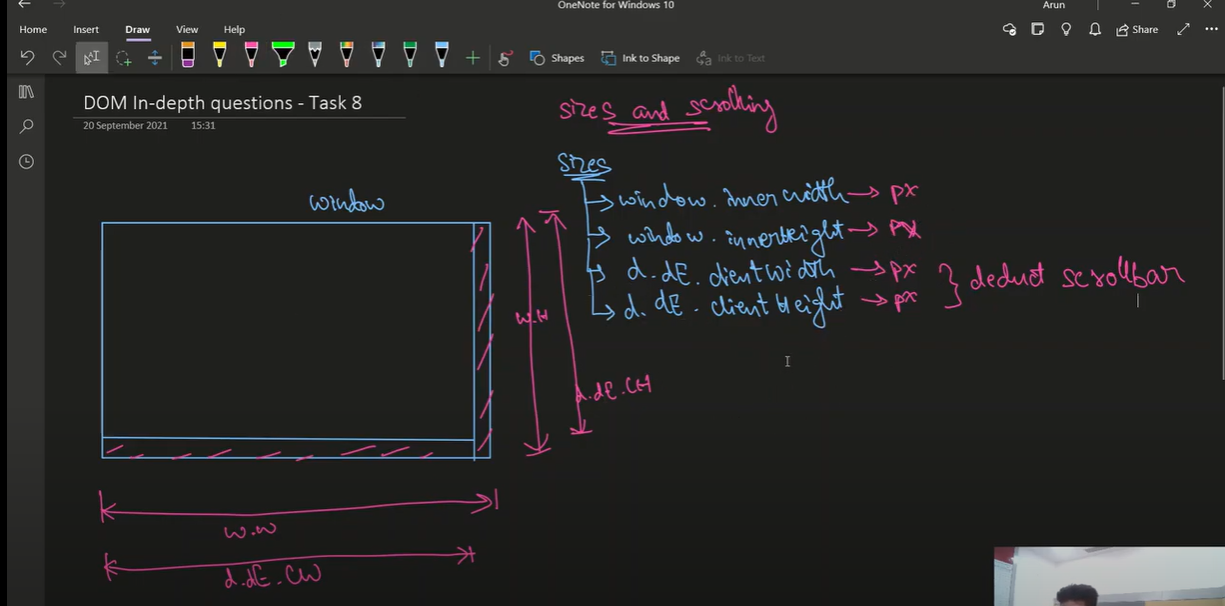 OneNote for Windows 10
Arun
Home Insert Draw View Help
Share
Shapes Ink to Shape Ink to Text
DOM In-depth questions - Task 8
20 September 2021 15:31
sizes and scrolling
sizes
window
window.innerwidth → px
window.innerHeight → px
d.dE.clientwidth → px
d.dE.clientHeight → px
} deduct scrollbar
W.H
d.dE.CH
w.w
d.dE.CW